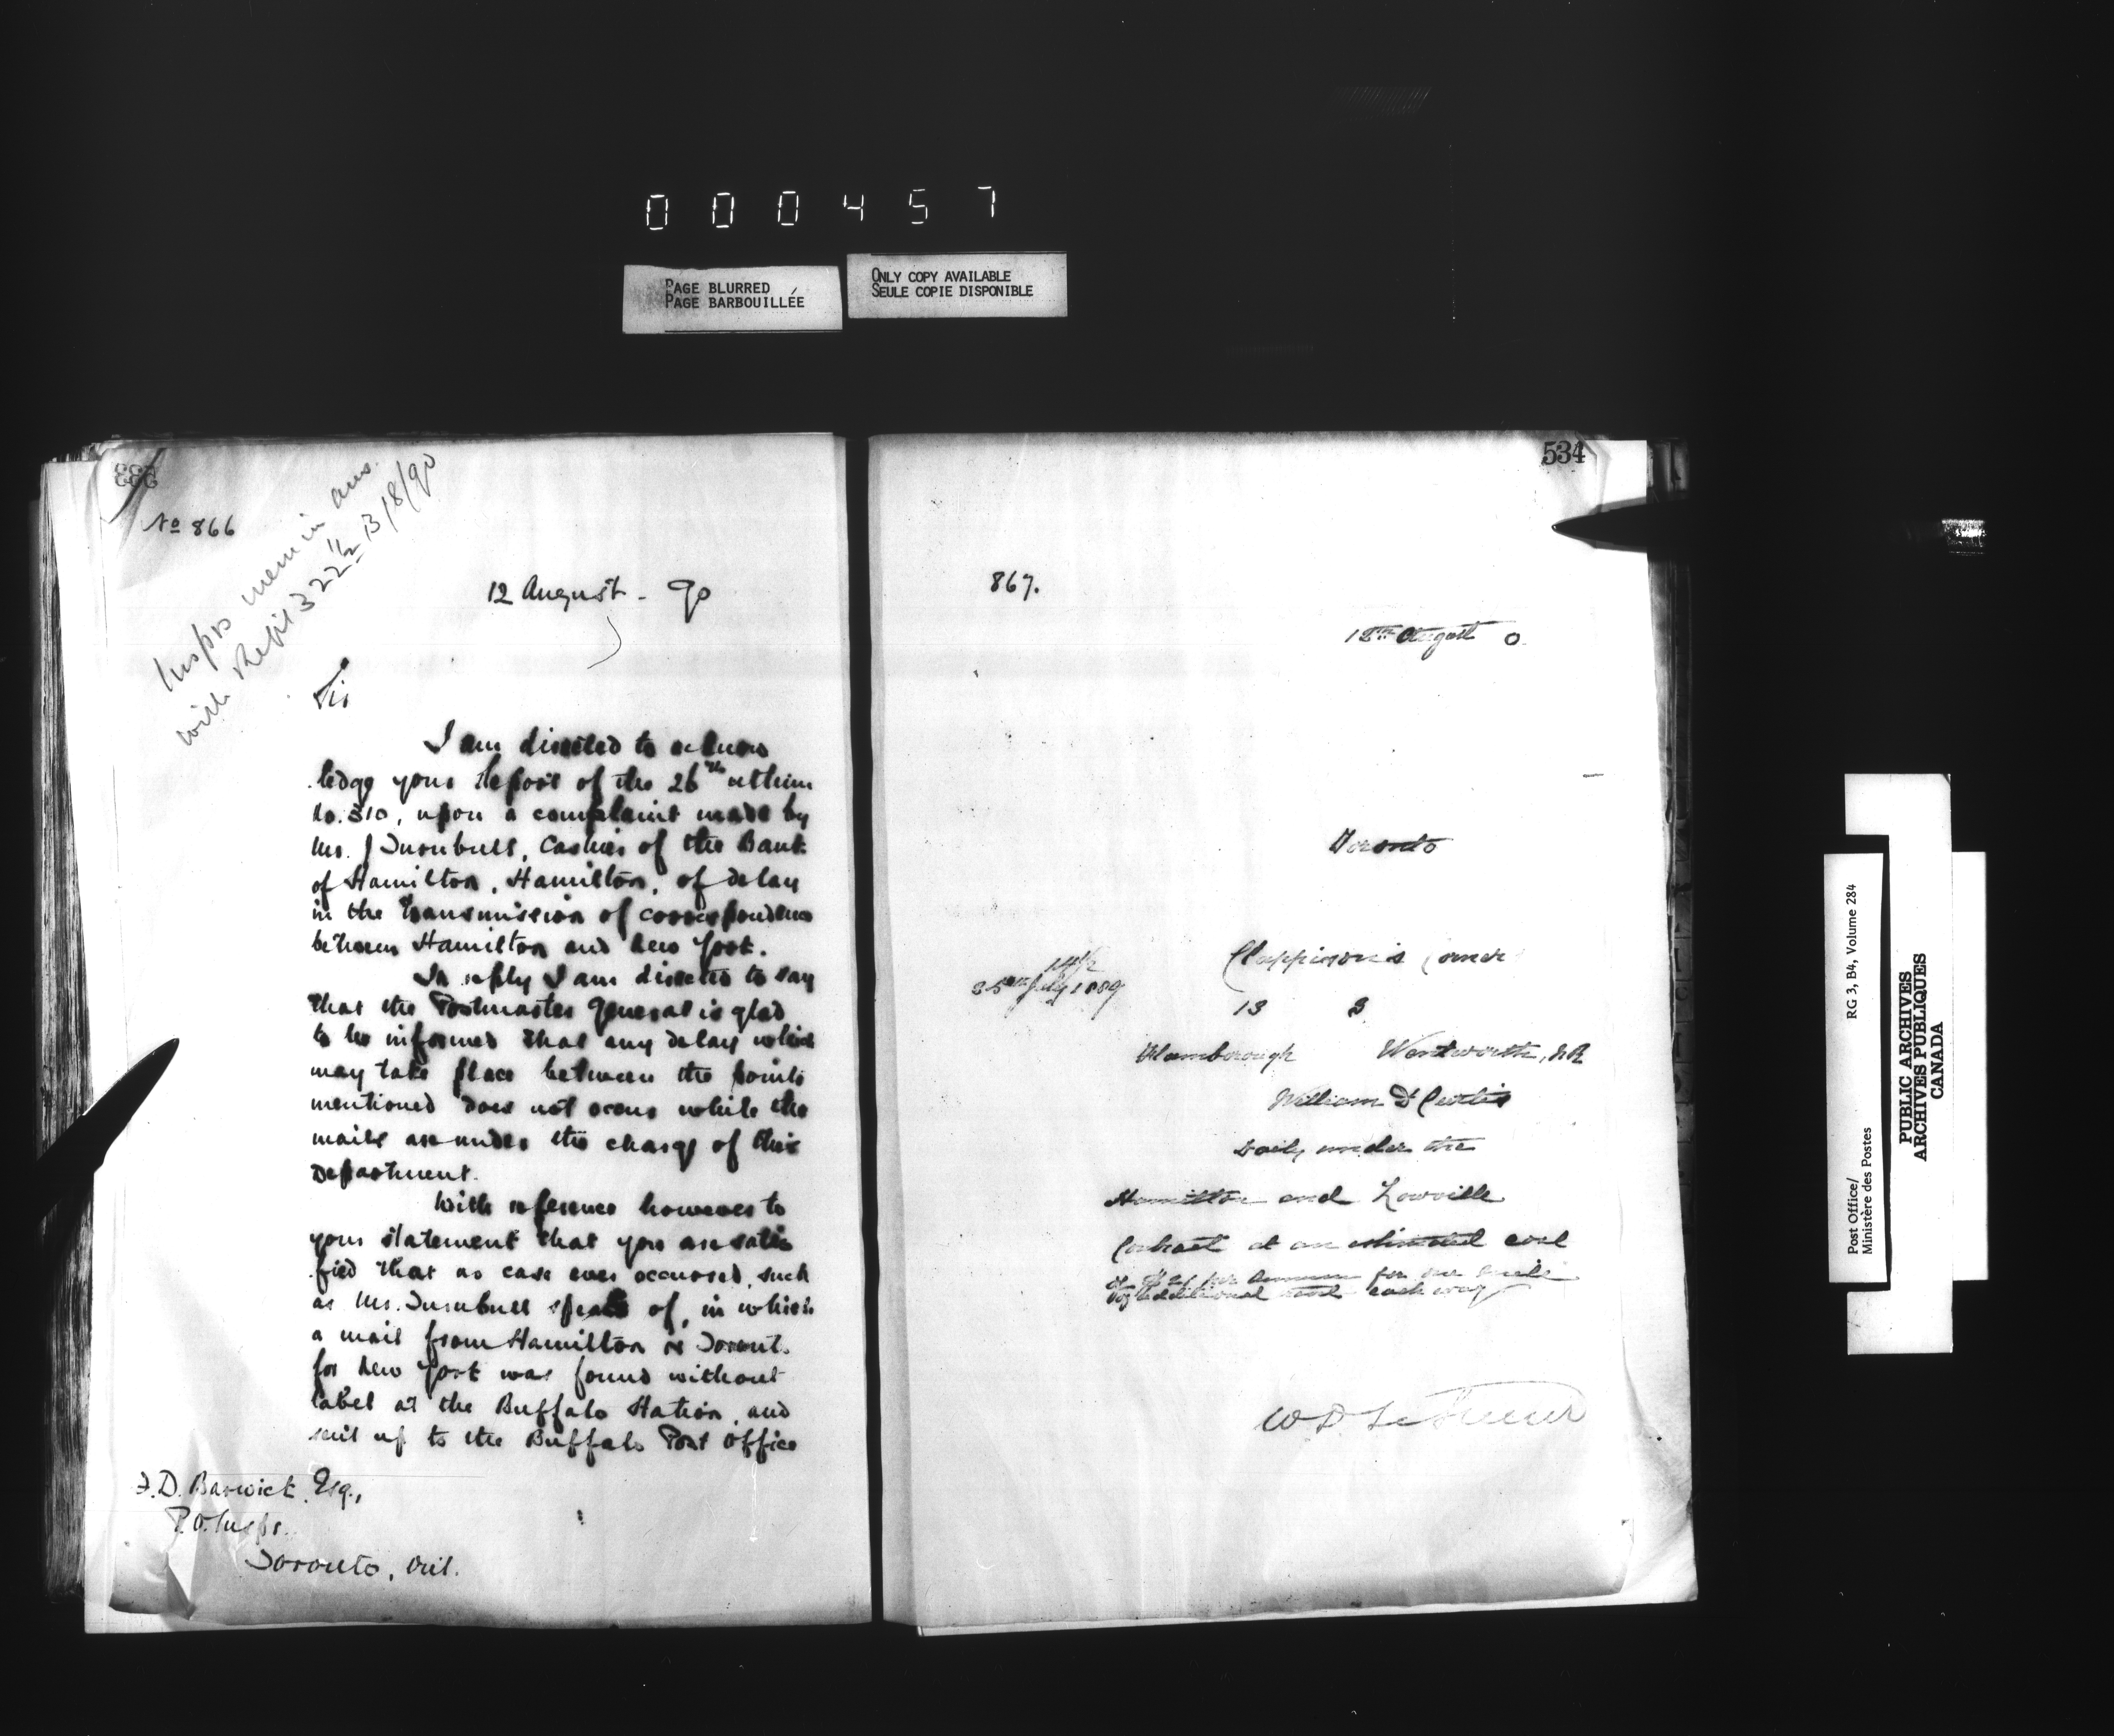 000457
PAGE BLURRED
PAGE BARBOUILLÉE
ONLY COPY AVAILABLE
SEULE COPIE DISPONIBLE
533
No 866
Insprs mem in ans.
with Rept 322 1/2 B/8/90
12 August - 90
Sir
I am directed to acknow
ledge your Report of the 26th ultimo
No. 310, upon a complaint made by
Mr. J Turnbull, Cashier of the Bank
of Hamilton, Hamilton, of delay
in the transmission of correspondence
between Hamilton and New York.
In reply I am directed to say
that the Postmaster General is glad
to be informed that any delay which
may take place between the points
mentioned does not occur while the
mails are under the charge of this
Department.
With reference however to
your statement that you are satis
fied that no case ever occurred, such
as Mr. Turnbull speaks of, in which
a mail from Hamilton or Toronto
for New York was found without
label at the Buffalo Station, and
sent up to the Buffalo Post Office
F.D. Barwick Esq.,
P.O. Inspr.
Toronto, Ont.
534
867.
12th August 0
Toronto
14 1/2
Clappison's Corner
25th July 1889
13 3
Flamborough Wentworth, N.R
William D Curtis
Daily under the
Hamilton and Lowville
Contract at an estimated cost
of per annum for one mile
additional travel each way
W D LeSueur
Post Office/
Ministère des Postes
RG 3, B4, Volume 284
PUBLIC ARCHIVES
ARCHIVES PUBLIQUES
CANADA